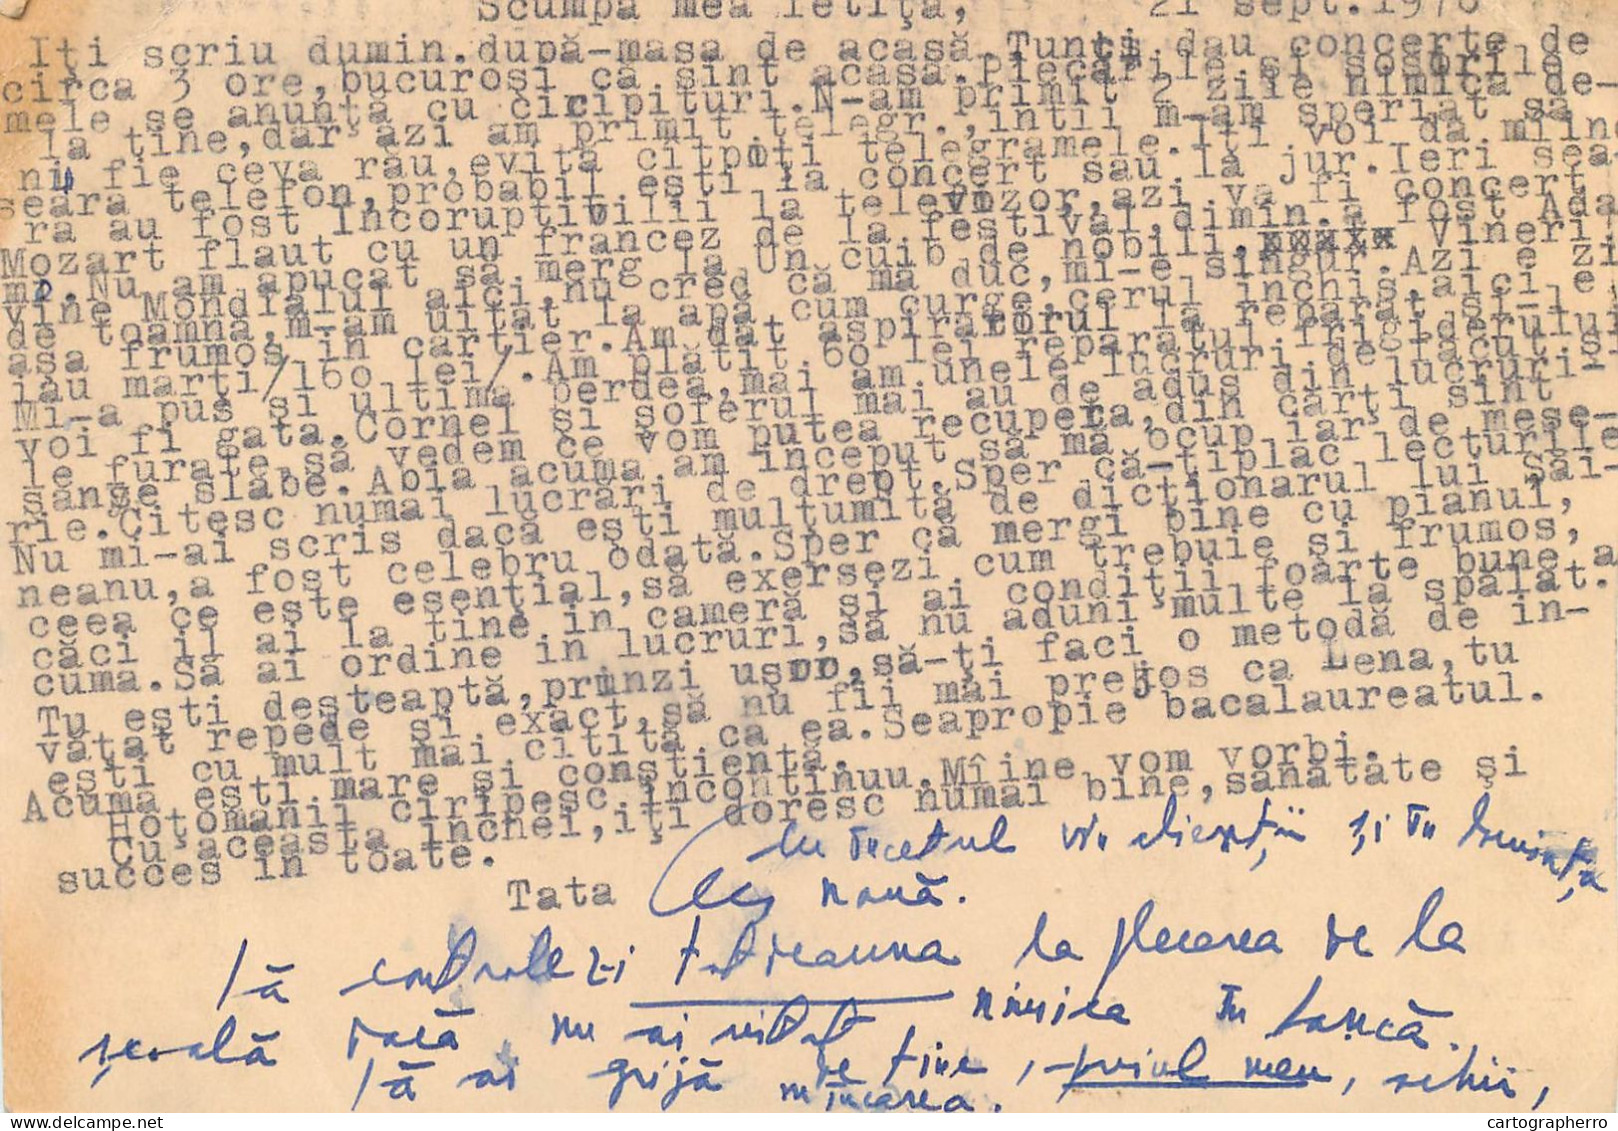 Scumpa mea fetiţă, 21 sept.1970
Iţi scriu dumin.după-masa de acasă.Tunţi dau concerte de
circa 3 ore,bucuroşi că sînt acasă.Plecările şi sosirile
mele se anunţă cu ciripituri.N-am primit 2 zile nimica de-
la tine,dar azi am primit telegr.,intîi m-am speriat să
nu fie ceva rău,evită telegramele.Iti voi da mîin
seara telefon,probabil eşti la concert sau la jur.Ieri sea
ra au fost Incoruptibilii la televizor,azi va fi concert
Mozart flaut cu un francez de la festival,dimin.a fost Ada
mp.Nu am apucat să merg la Un cuib de nobili,xxxxx Vineri
vine Mondialul aici,nu cred că mă duc,mi-e singur.Azi e zi
de toamna,m-am uitat la apă cum curge,cerul inchis,aici e
asa frumos in cartier.Am dat aspiratorul la reparat si-l
iau marţi/160 lei/.Am plătit 60 lei reparatul frigiderului
Mi-a pus si ultima perdea,mai am unele lucruri de făcut si
voi fi gata.Cornel si soferul mai au de adus din lucruri-
le furate,să vedem ce vom putea recupera,din cărţi sint
sanse slabe.Abia acuma am inceput să mă ocup iar de mese-
rie.Citesc numai lucrări de drept.Sper că-ţiplac lecturile
Nu mi-ai scris dacă esti multumită de dicţionarul lui Săi-
neanu,a fost celebru odată.Sper că mergi bine cu pianul,
ceea ce este esenţial,să exersezi cum trebuie si frumos,
căci il ai la tine in cameră si ai condiţii foarte bune a
cuma.Să ai ordine in lucruri,să nu aduni multe la spălat.
Tu esti desteaptă,prinzi usor,să-ţi faci o metodă de in-
vătat repede si exact,să nu fii mai prejos ca Lena,tu
esti cu mult mai citită ca ea.Seapropie bacalaureatul.
Acuma esti mare si constientă.
Hoţomanii ciripesc incontinuu.Mîine vom vorbi.
Cu aceasta inchei,iţi doresc numai bine,sănătate şi
succes in toate.
Tata
şi în locuinţa
nouă.
Să controlezi totdeauna la plecarea de la
școală dacă nu ai uitat nimica în bancă.
Să ai grijă de tine, puiul meu,
mîncarea.
cartographerro